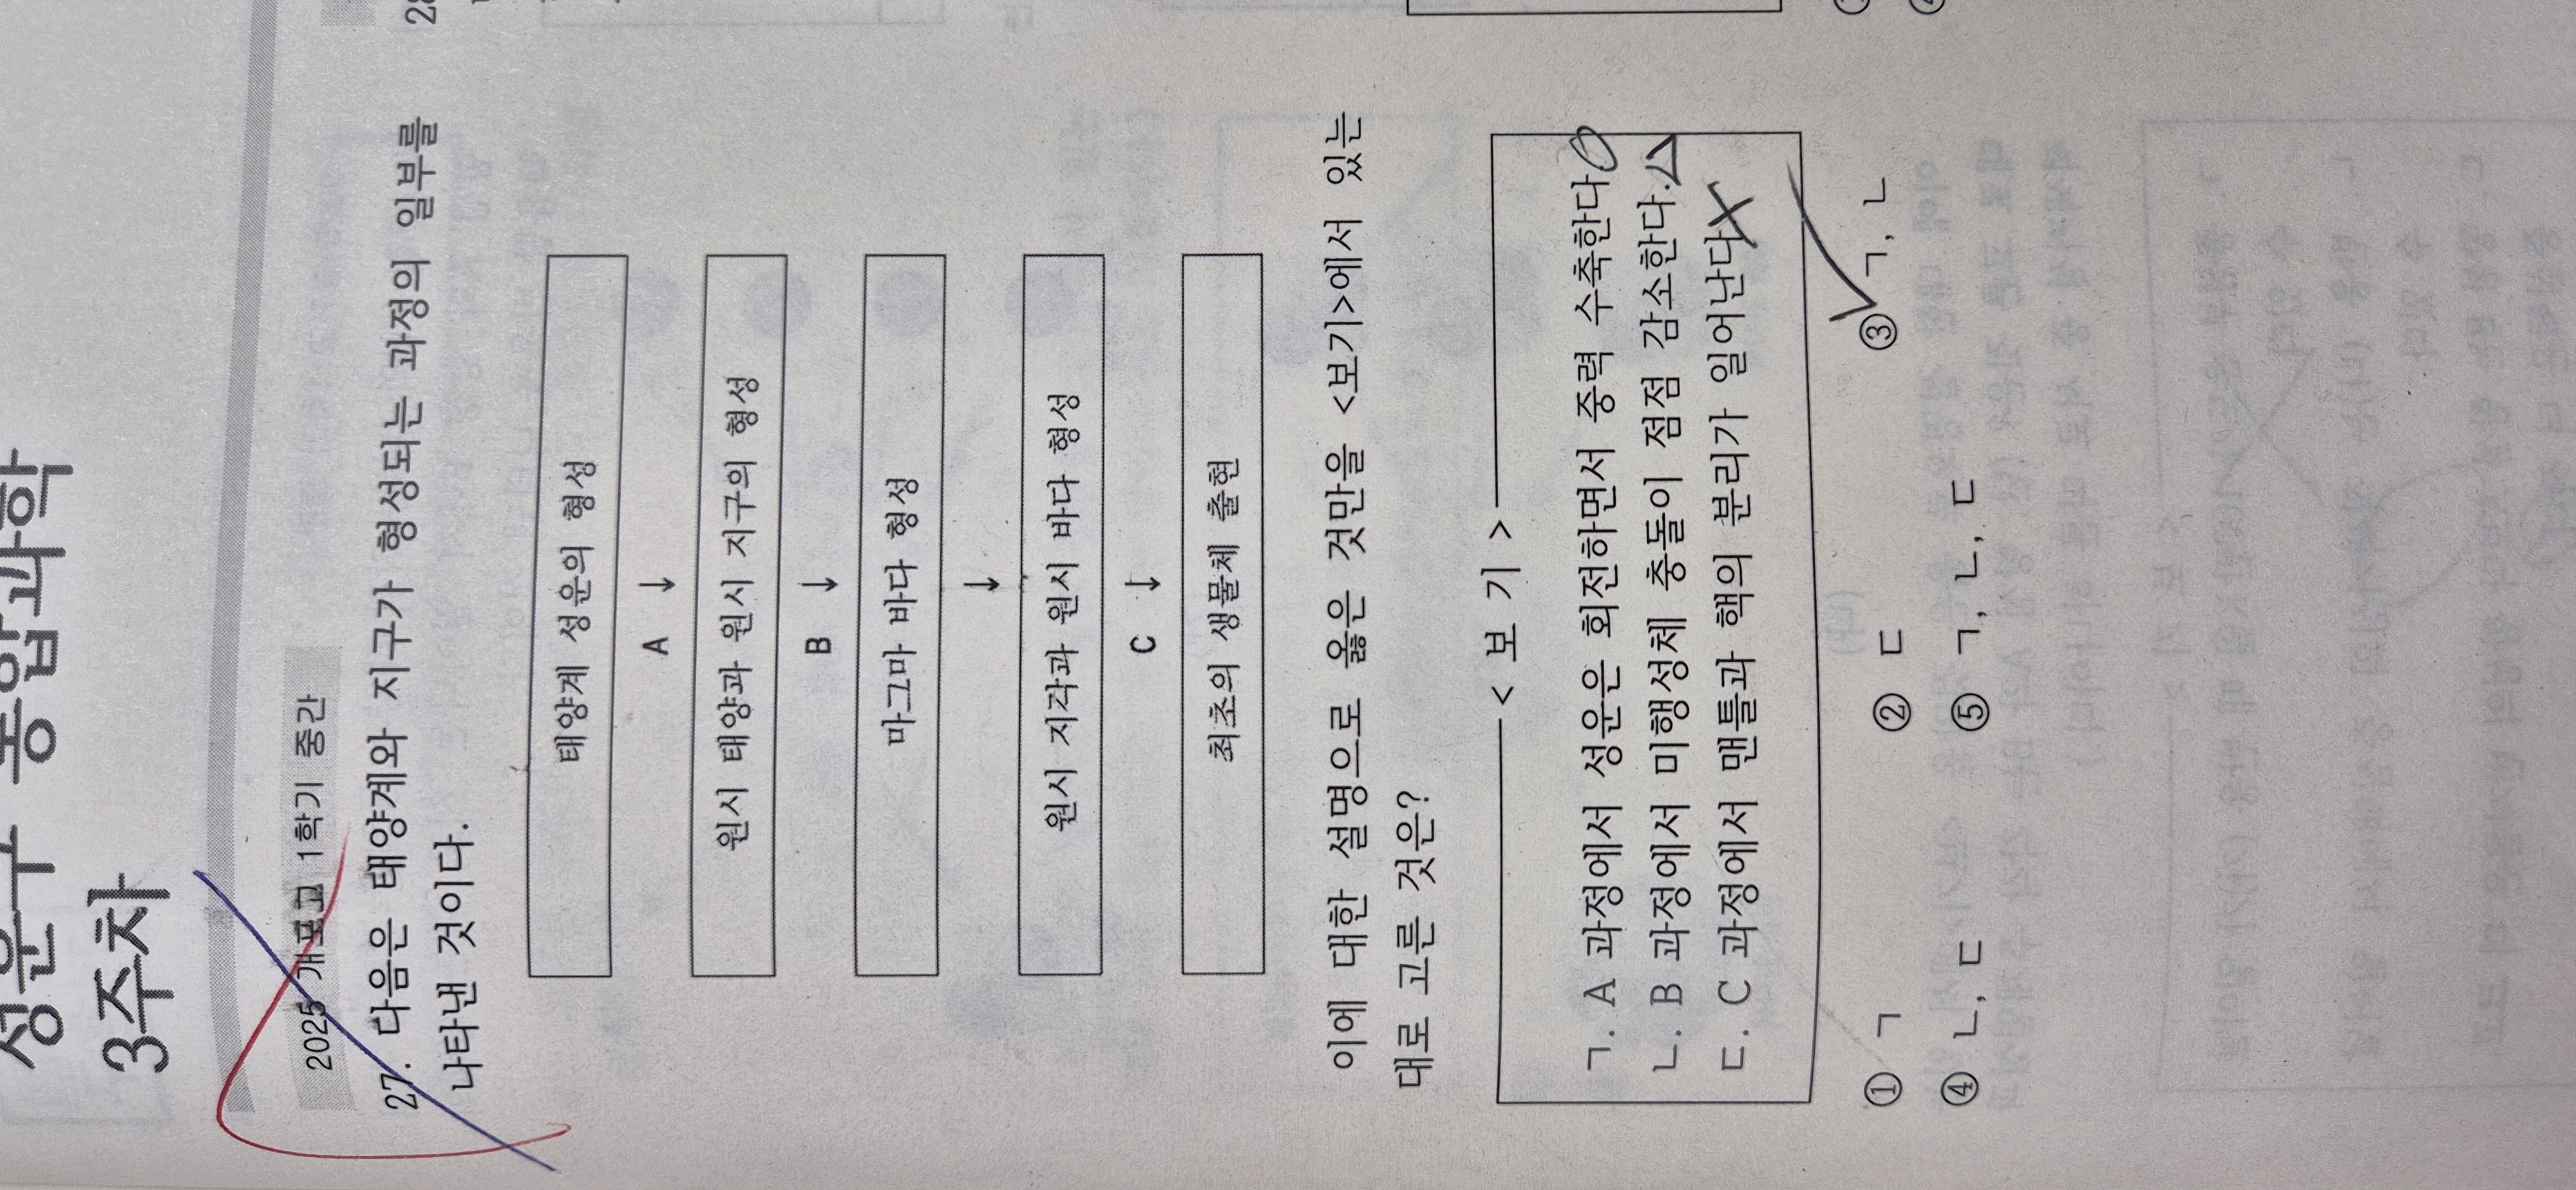 3주차
2025 개포고 1학기 중간
27. 다음은 태양계와 지구가 형성되는 과정의 일부를
나타낸 것이다.
태양계 성운의 형성
A ↓
원시 태양과 원시 지구의 형성
B ↓
마그마 바다 형성
↓
원시 지각과 원시 바다 형성
C ↓
최초의 생물체 출현
이에 대한 설명으로 옳은 것만을 <보기>에서 있는
대로 고른 것은?
< 보 기 >
ㄱ. A 과정에서 성운은 회전하면서 중력 수축한다
ㄴ. B 과정에서 미행성체 충돌이 점점 감소한다.
ㄷ. C 과정에서 맨틀과 핵의 분리가 일어난다
① ㄱ ② ㄷ ③ ㄱ, ㄴ
④ ㄴ, ㄷ ⑤ ㄱ, ㄴ, ㄷ